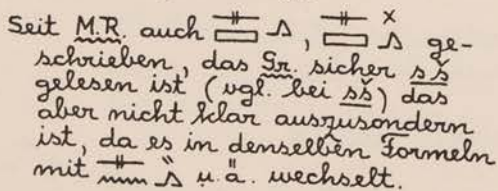 Seit M.R. auch 𓊃𓈙𓂻, 𓊃𓈙𓏴𓂻 ge-
schrieben, das Gr. sicher sš
gelesen ist (vgl. bei sš) das
aber nicht klar auszusondern
ist, da es in denselben Formeln
mit 𓊃𓈖𓏭𓂻 u. ä. wechselt.